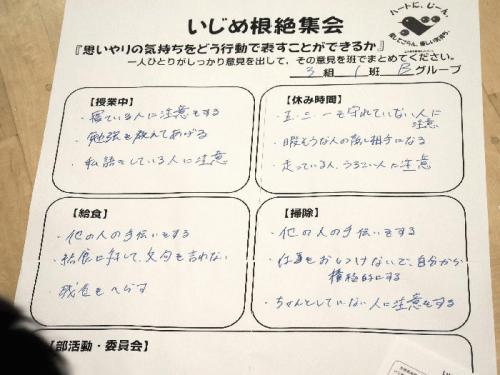 いじめ根絶集会
ハートに、じーん。
『思いやりの気持ちをどう行動で表すことができるか』
一人ひとりがしっかり意見を出して、その意見を班でまとめてください。
3組 1班 Bグループ
【授業中】
・寝ている人に注意をする
・勉強を教えてあげる
・私語をしている人に注意
【休み時間】
・五・三・一を守れていない人に
注意
・暇そうな人の話し相手になる
・走っている人、うるさい人に注意
【給食】
・他の人の手伝いをする
・給食に対して、文句を言わない
・残食をへらす
【掃除】
・他の人の手伝いをする
・仕事をおしつけないで、自分から
積極的にする
・ちゃんとしていない人に注意をする
【部活動・委員会】